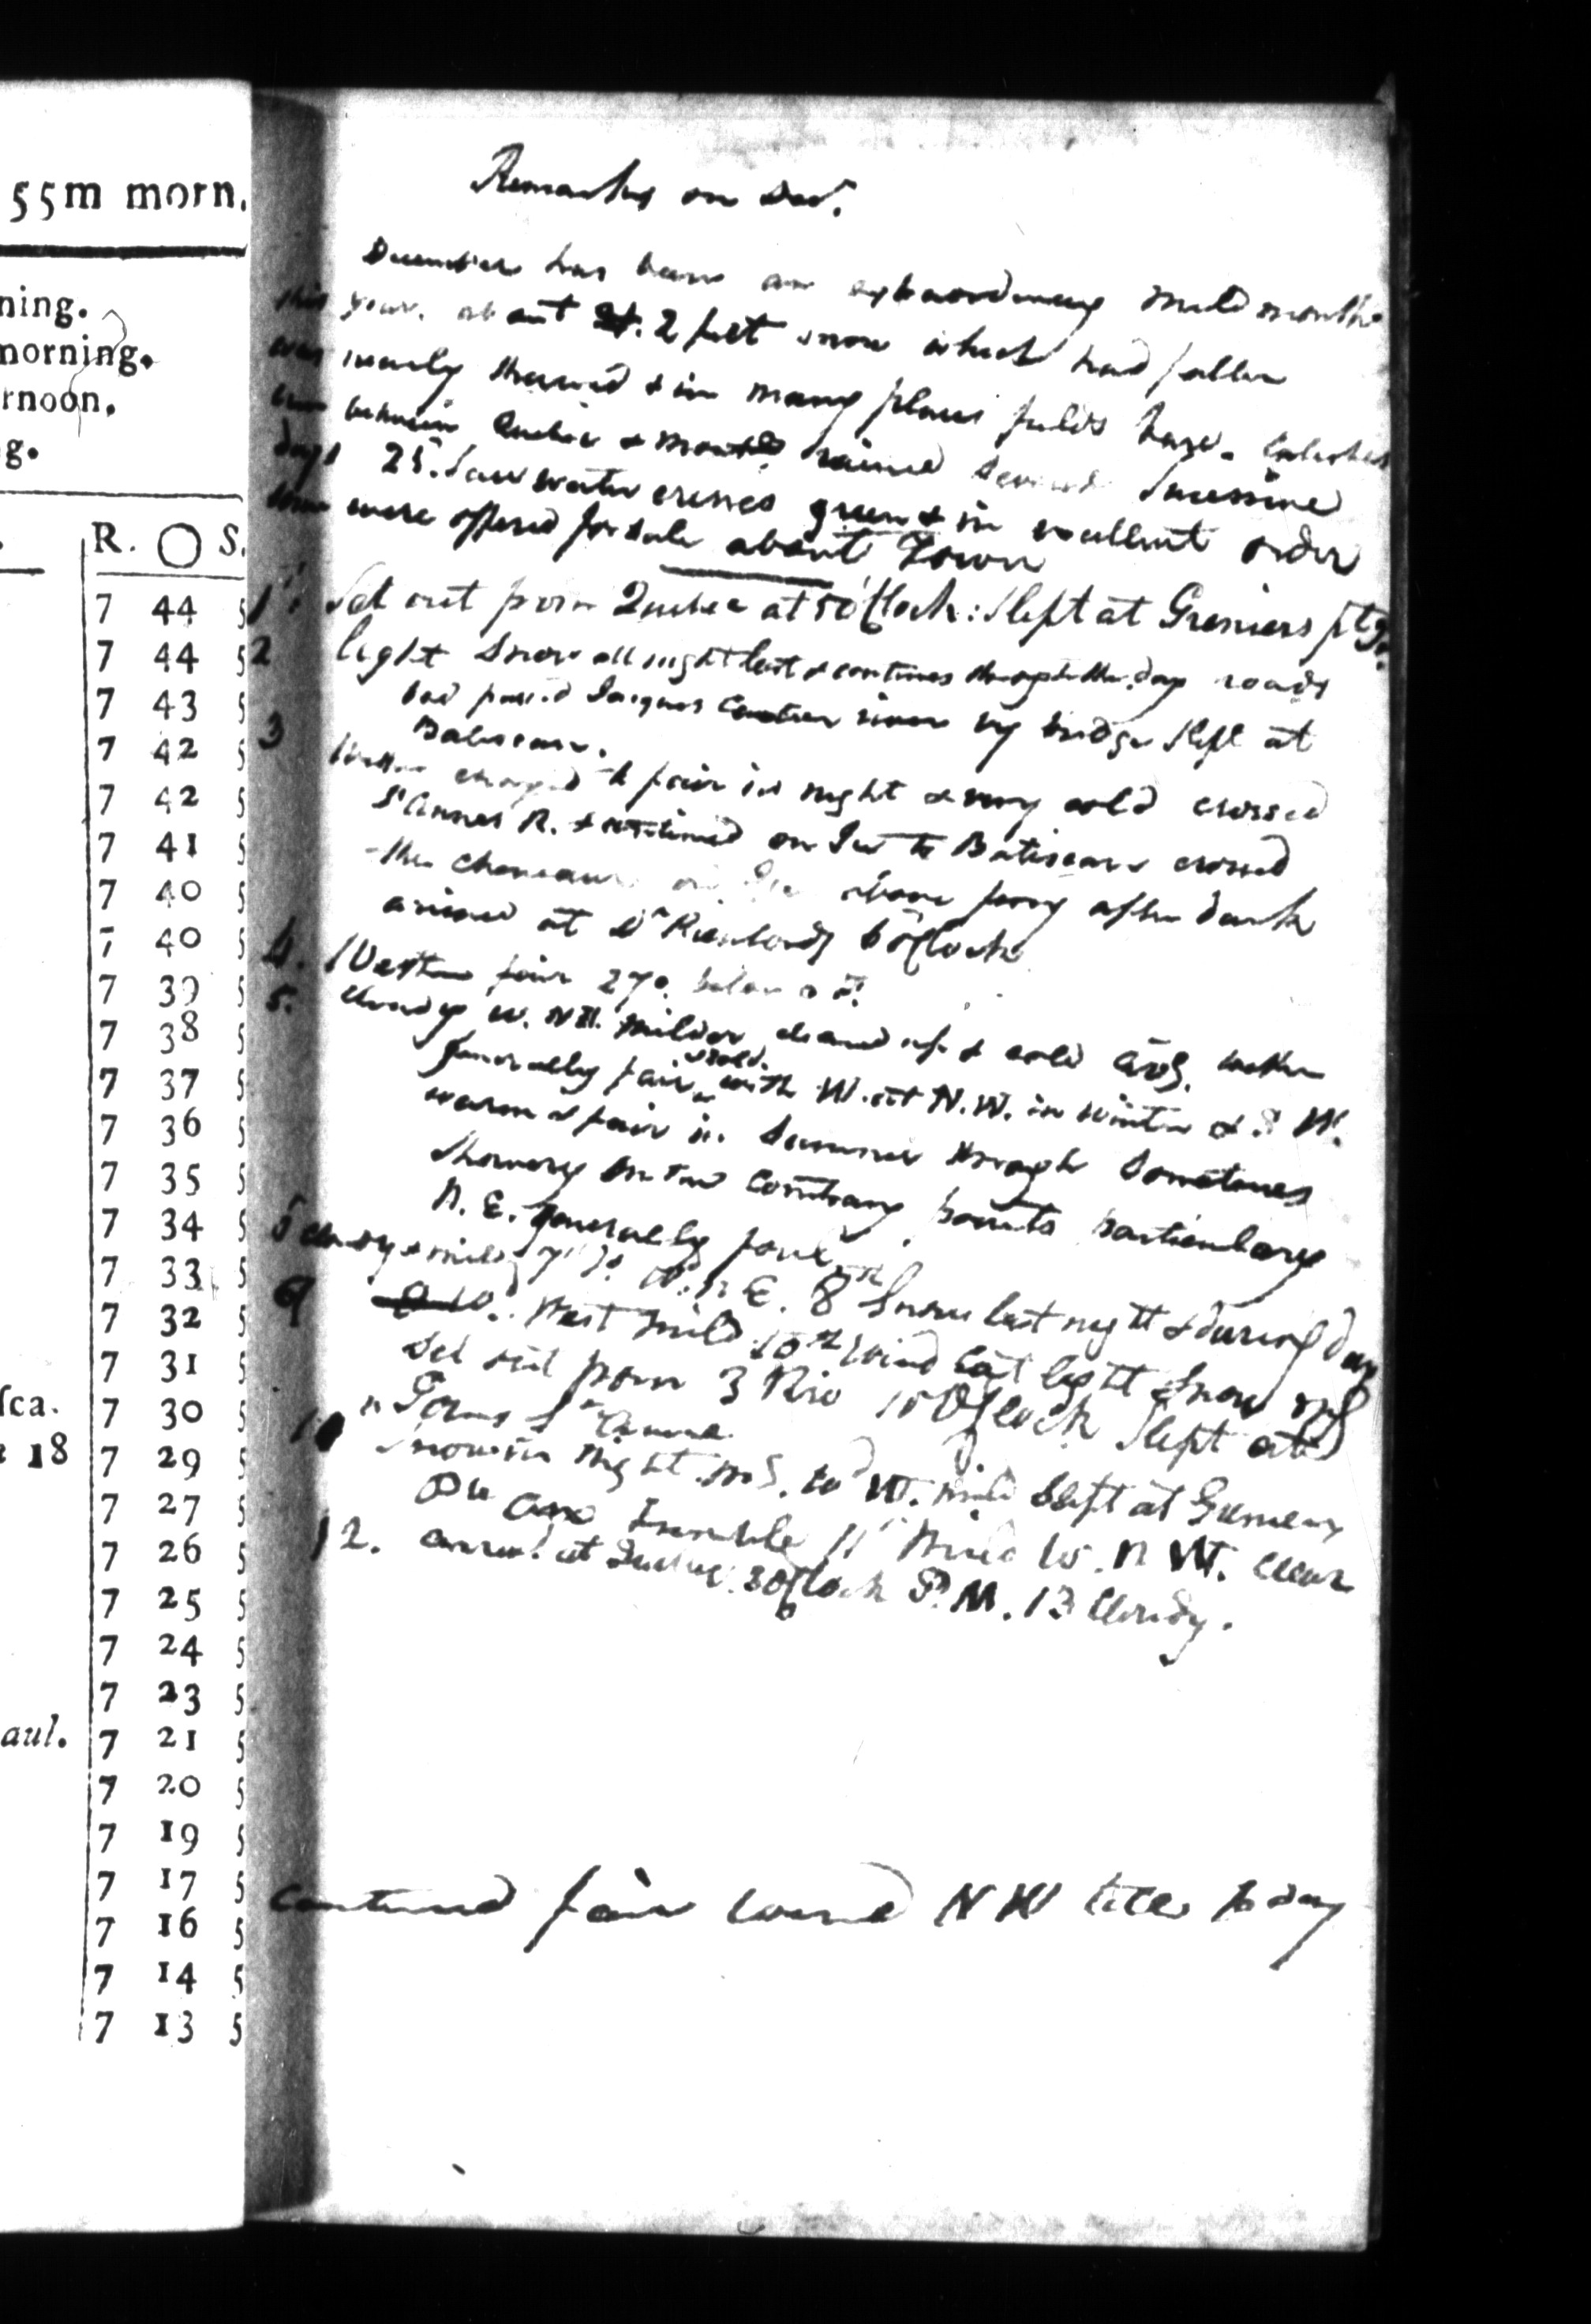 55m morn.
ning.
morning.
rnoon.
g.
R. O S.
7 44 5
7 44 5
7 43 5
7 42 5
7 42 5
7 41 5
7 40 5
7 40 5
7 39 5
7 38 5
7 37 5
7 36 5
7 35 5
7 34 5
7 33 5
7 32 5
7 31 5
ſca. 7 30 5
18 7 29 5
7 27 5
7 26 5
7 25 5
7 24 5
7 23 5
aul. 7 21 5
7 20 5
7 19 5
7 17 5
7 16 5
7 14 5
7 13 5
Remarks on Dec.
December has been an extraordinary mild month
this year. about 2 feet snow which had fallen
was nearly thawed & in many places fields bare. Calashes
between Quebec & rained several Successive
days 25. Saw water cresses green & in excellent order
were offered for sale about Town
1st Set out from Quebec at 5 OClock: Slept at Greniers
2 light Snow all night last & continues through the day roads
bad passed Jacques Cartier river by bridge Slept at
Batiscan.
3 changed to fair in night & very cold crossed
St Annes R. & continued on Ice to Batiscan crossed
the above ferry after dark
arrived at 6 oClock
4. Weather fair 27o. below
5. Cloudy W. milder cleared up & cold
generally fair & cold. with W. at N.W. in winter & S W.
warm & fair in Summer through Sometimes
Showery on the Contrary points particularly
N. E. generally foul
cloudy & mild N. E. 8th Snow last night & during day
9 West mild 10th Wind East light Snow
Set out from 3 Riv 10 OClock Slept at
St Anne
Snow in night W. mild Slept at
11 Wind W. N W. clear
12. arrived at Quebec 3 oClock P.M. 13 Cloudy.
Continued fair wind N W till to day